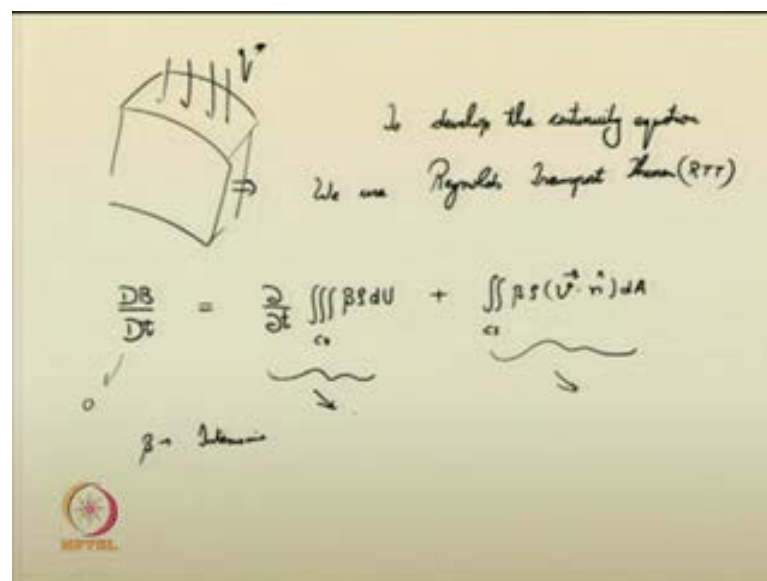 V
To develop the continuity equation
We use Reynolds Transport Theorem (RTT)
DB/Dt = ∂/∂t ∭ βρdU + ∬ β ρ (V⃗· n̂) dA
cv cs
0
β → Intensive
NPTEL